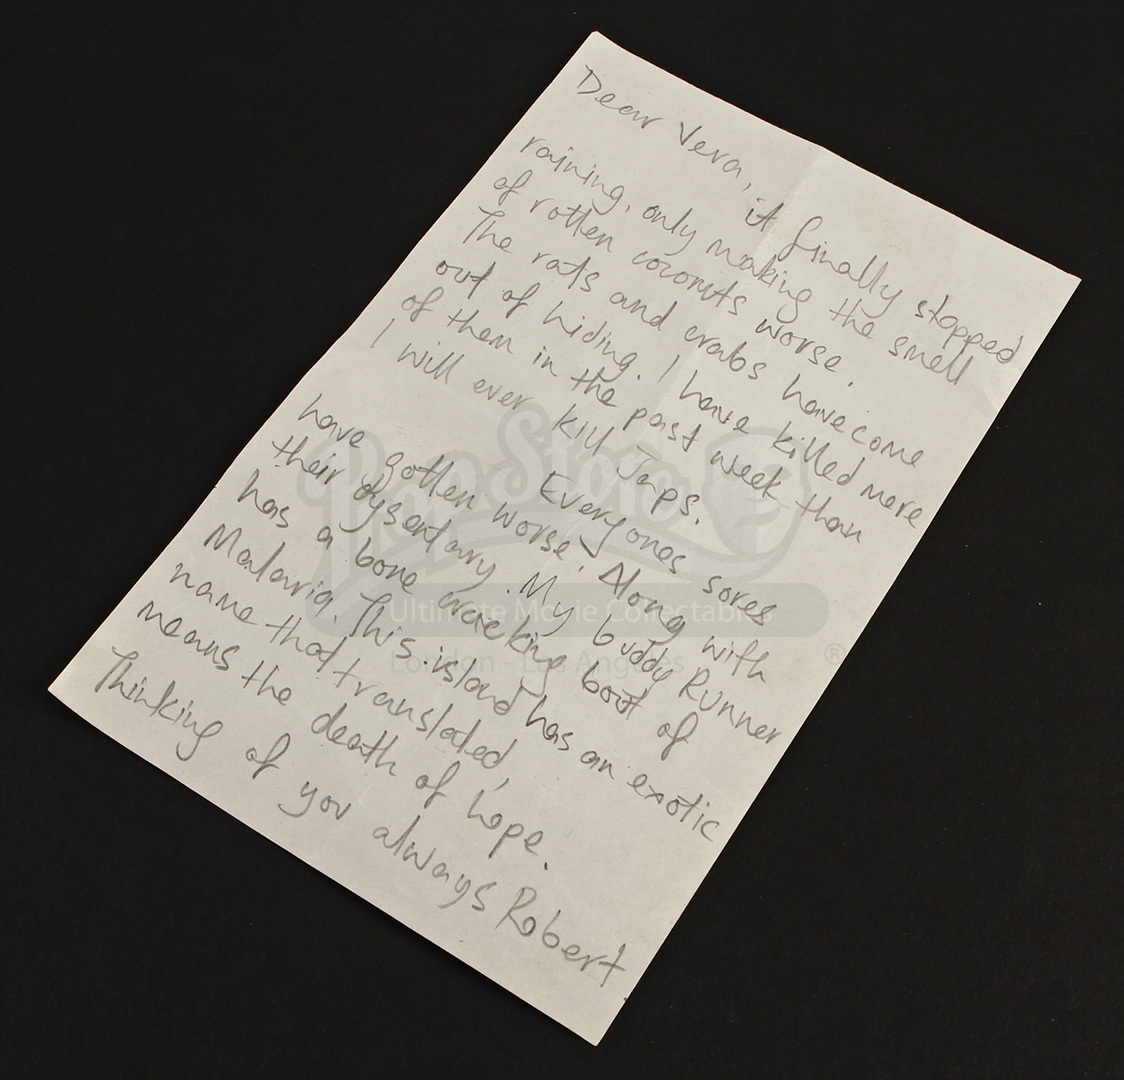 Dear Vera, it finally stopped
raining, only making the smell
of rotten coconuts worse.
The rats and crabs have come
out of hiding. I have killed more
of them in the past week than
I will ever kill Japs.
Everyones sores
have gotten worse. Along with
their dysentary. My buddy Runner
has a bone cracking bout of
Malaria. This island has an exotic
name that translated,
means the death of hope.
Thinking of you always Robert
Prop Store
Ultimate Movie Collectables
London - Los Angeles
®